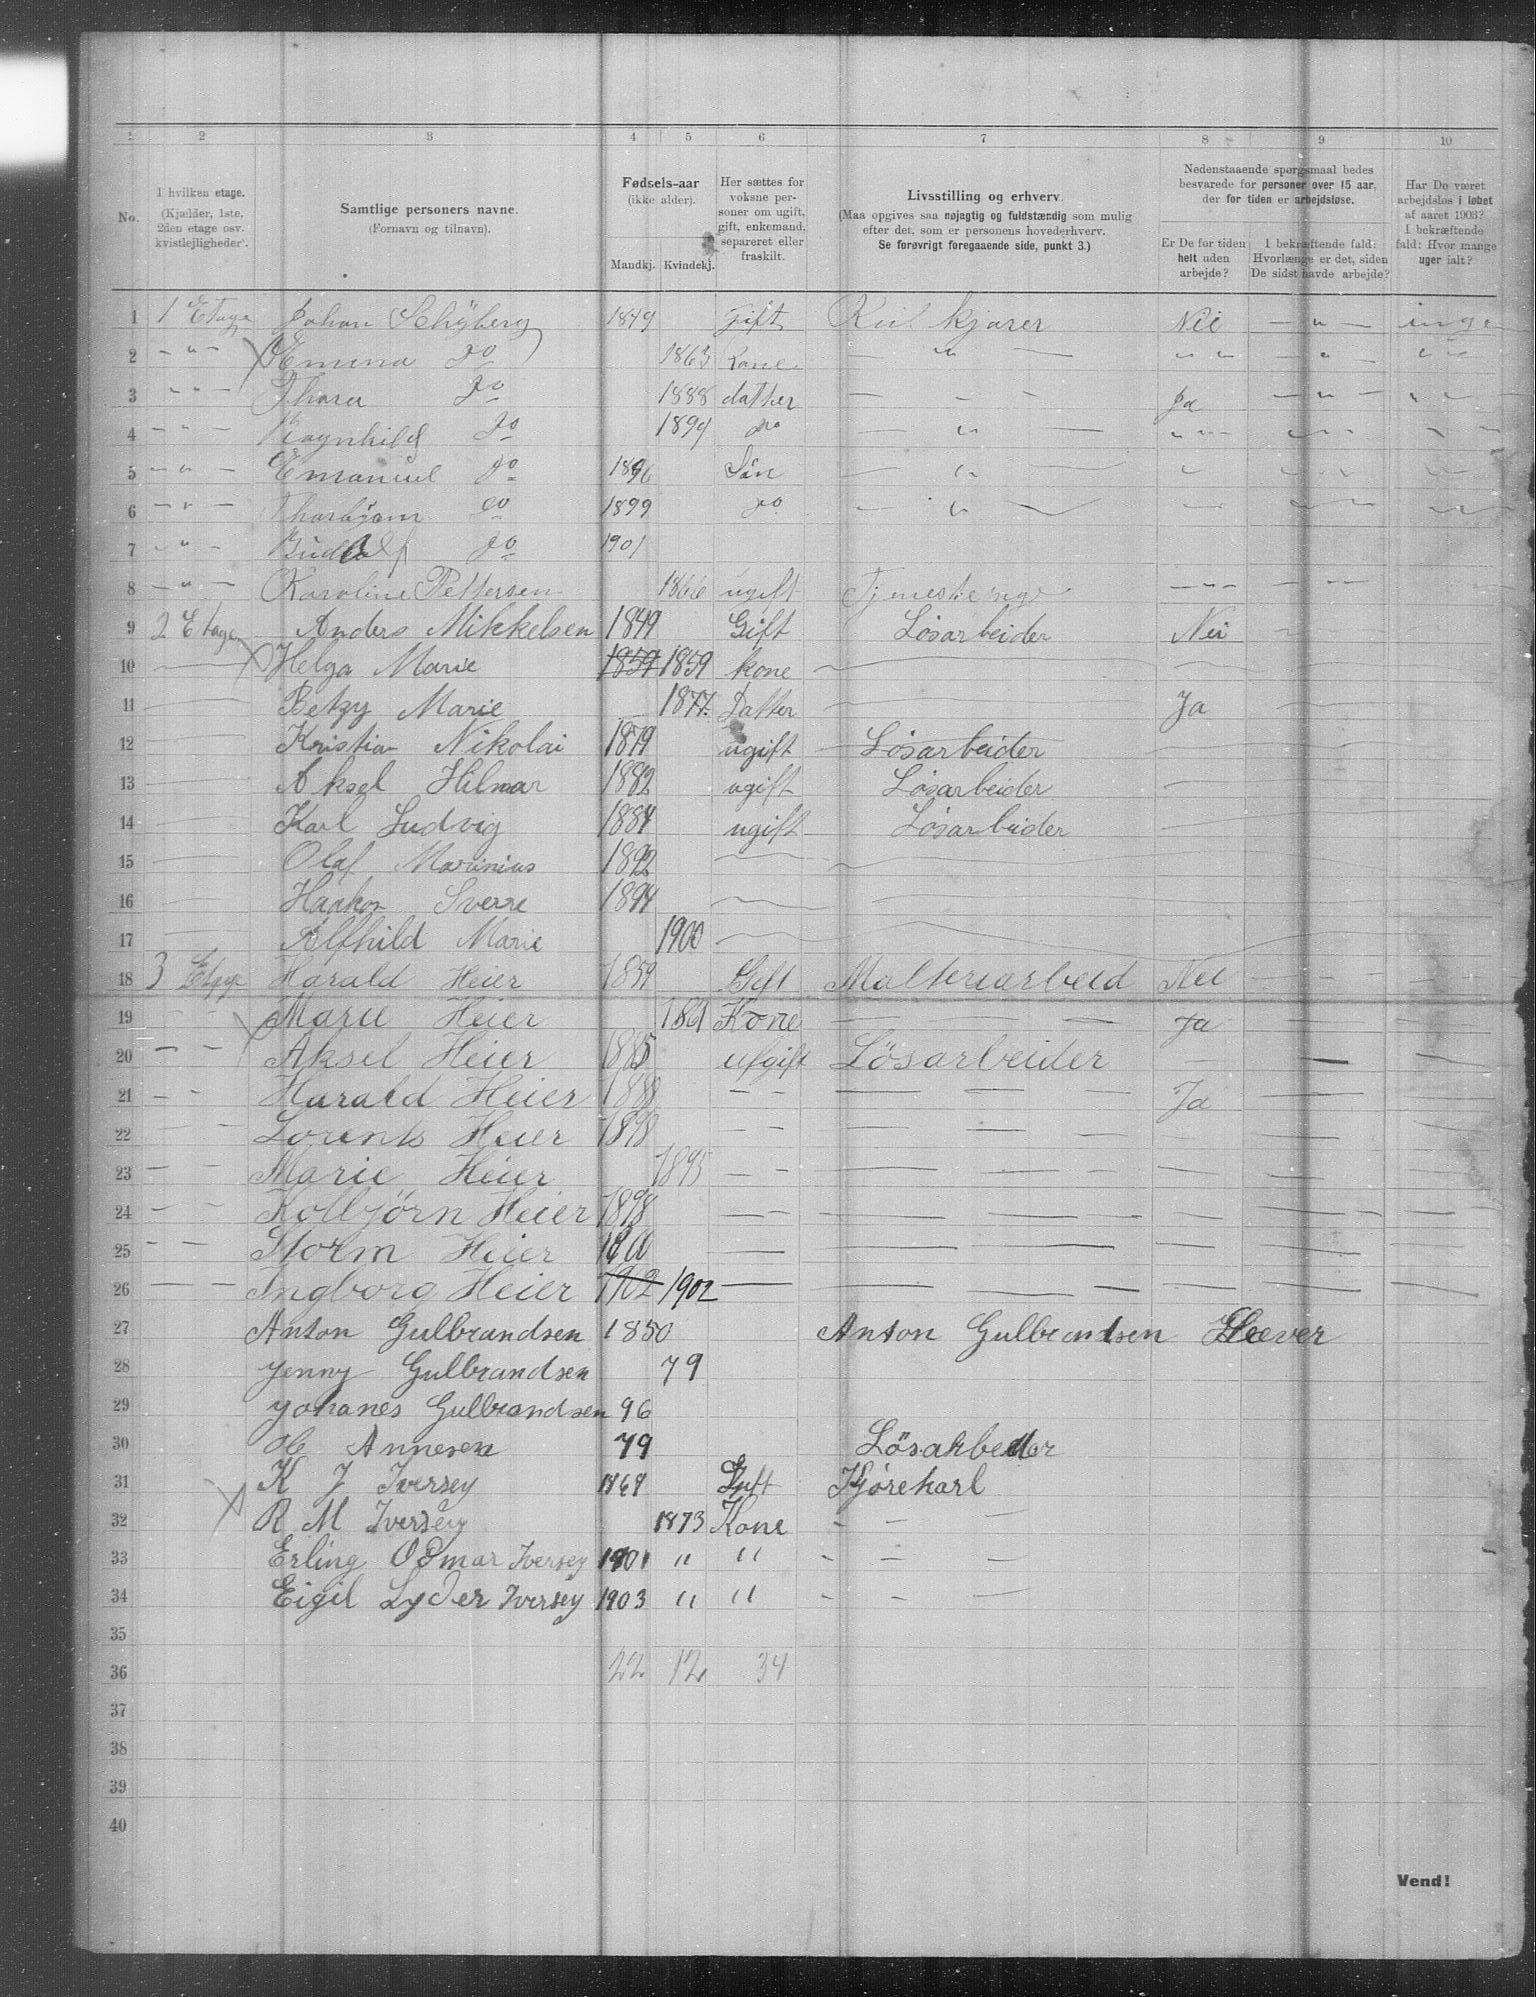 1 2 3 4 5 6 7 8 9 10
No.
I hvilken etage.
(Kjælder, 1ste, 2den etage osv. kvistlejligheder).
Samtlige personers navne.
(Fornavn og tilnavn).
Fødsels-aar
(ikke alder).
Mandkj. Kvindekj.
Her sættes for voksne personer om ugift, gift, enkemand, separeret eller fraskilt.
Livsstilling og erhverv.
(Maa opgives saa nøjagtig og fuldstændig som mulig efter det, som er personens hovederhverv.
Se forøvrigt foregaaende side, punkt 3.)
Nedenstaaende spørgsmaal bedes besvarede for personer over 15 aar, der for tiden er arbejdsløse.
Er De for tiden helt uden arbejde?
I bekræftende fald: Hvorlænge er det, siden De sidst havde arbejde?
Har De været arbejdsløs i løbet af aaret 1903? I bekræftende fald: Hvor mange uger ialt?
1 1 Etage Johan Schyberg 1849 Gift kjører Nei — " — inge
2 — " — Emma Do 1863 Kone — " —
3 — " — Thora Do 1888 datter — - - Ja
4 — " — Ragnhild Do 1894 Do — " —
5 — " — Emanuel Do 1896 Sön — " —
6 — " — Thorbjørn Do 1899 Do — " —
7 — " — Do 1901
8 — " — Karoline Pettersen 1866 ugift
9 2 Etage Anders Mikkelsen 1849 Gift Lösarbeider Nei
10 — Helga Marie 1859 1859 kone
11 — Betzy Marie 1877. Datter Ja
12 — Kristian Nikolai 1879 ugift Lösarbeider
13 — Aksel Hilmar 1882 ugift Lösarbeider
14 — Karl Ludvig 1884 ugift Lösarbeider
15 — Olaf Marinius 1892
16 — Haakon Sverre 1894
17 — Alfhild Marie 1900
18 3 Etage Harald Heier 1859 Gift Malteriarbeid Nei
19 - - Marie Heier 1861 Kone Ja
20 - - Aksel Heier 1885 ufgift Lösarbeider
21 - - Harald Heier 1888 - - Ja
22 - - Lorents Heier 1898 - -
23 - - Marie Heier 1895 - -
24 - - Kolbjörn Heier 1898 - -
25 - - Storm Heier 1900 —
26 — — Ingborg Heier 1902 1902 —
27 Anton Gulbrandsen 1850 Anton Gulbrandsen
28 Jenny Gulbrandsen 79
29 Johanes Gulbrandsen 96
30 Annesen 79 Lösarbeider
31 K J Iversen 1869 Gift Kjörekarl
32 R M Iversen 1873 Kone - - —
33 Erling Odmar Iversen 1901 " " - - —
34 Eigil Lyder Iversen 1903 " " - - —
35
36 22 12 34
37
38
39
40
Vend!